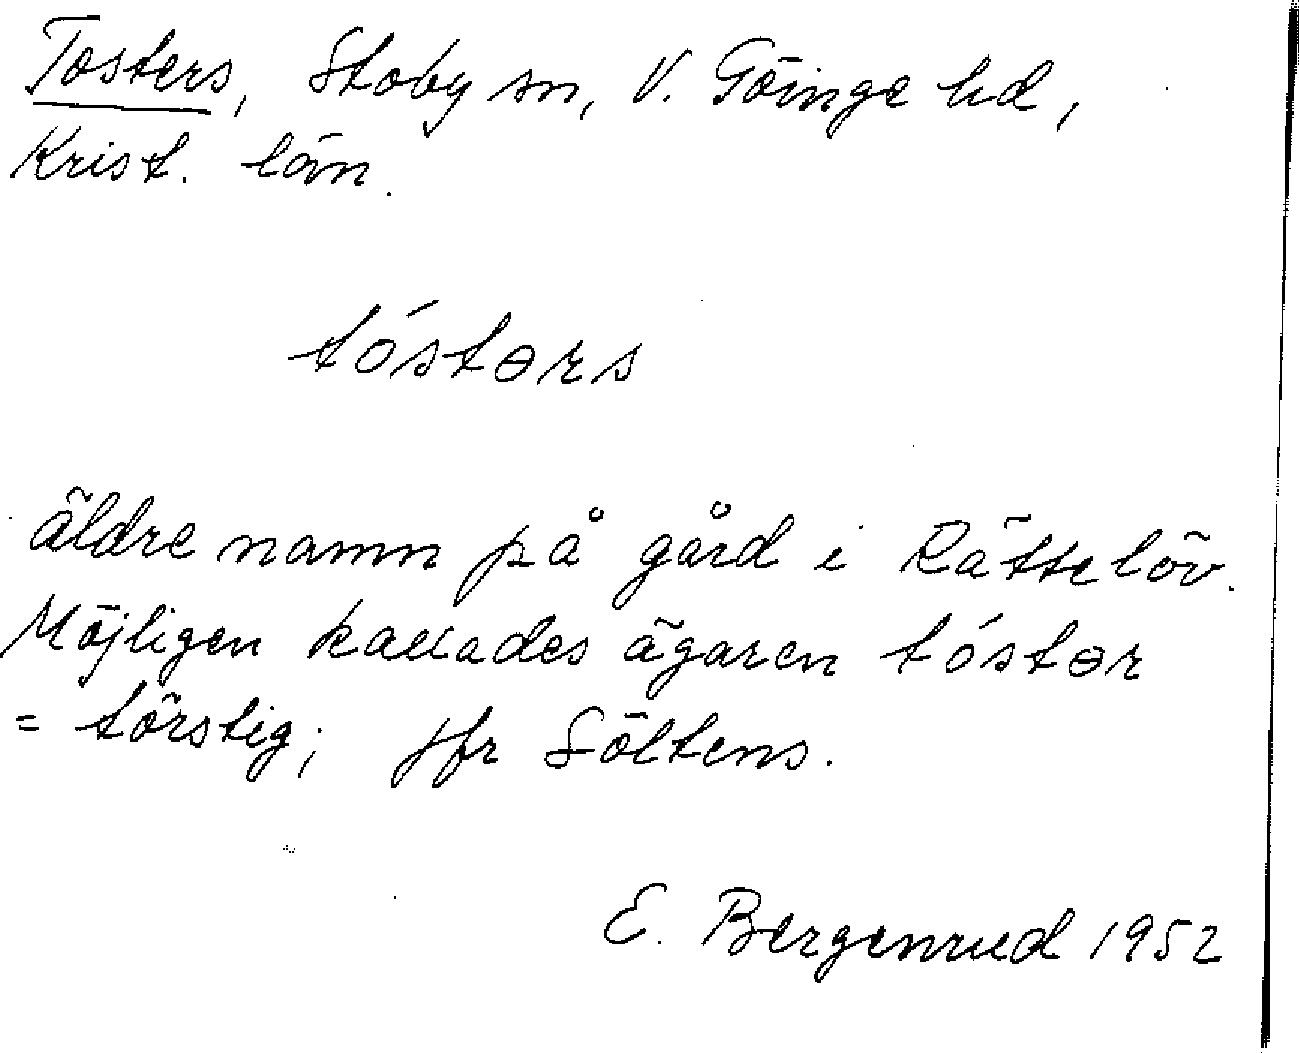 Tosters, Stoby sn, V. Göinge hd,
Krist. län.
tóstərs
äldre namn på gård i Rättelöv.
Möjligen kallades ägaren tóstər
= törstig; jfr Söltens.
E. Bergenrud 1952